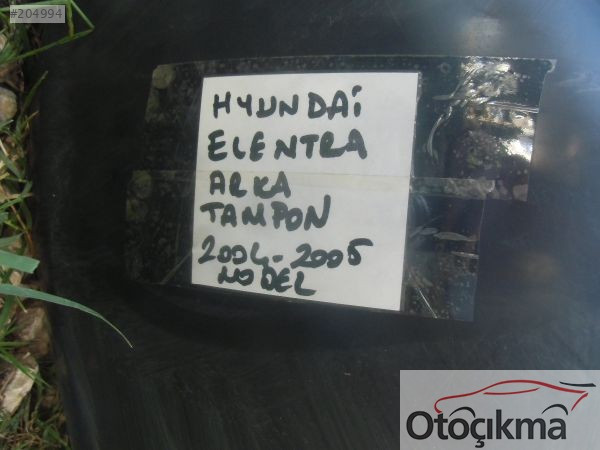 #204994
HYUNDAİ
ELENTRA
ARKA
TAMPON
2004-2005
MODEL
Otoçıkma